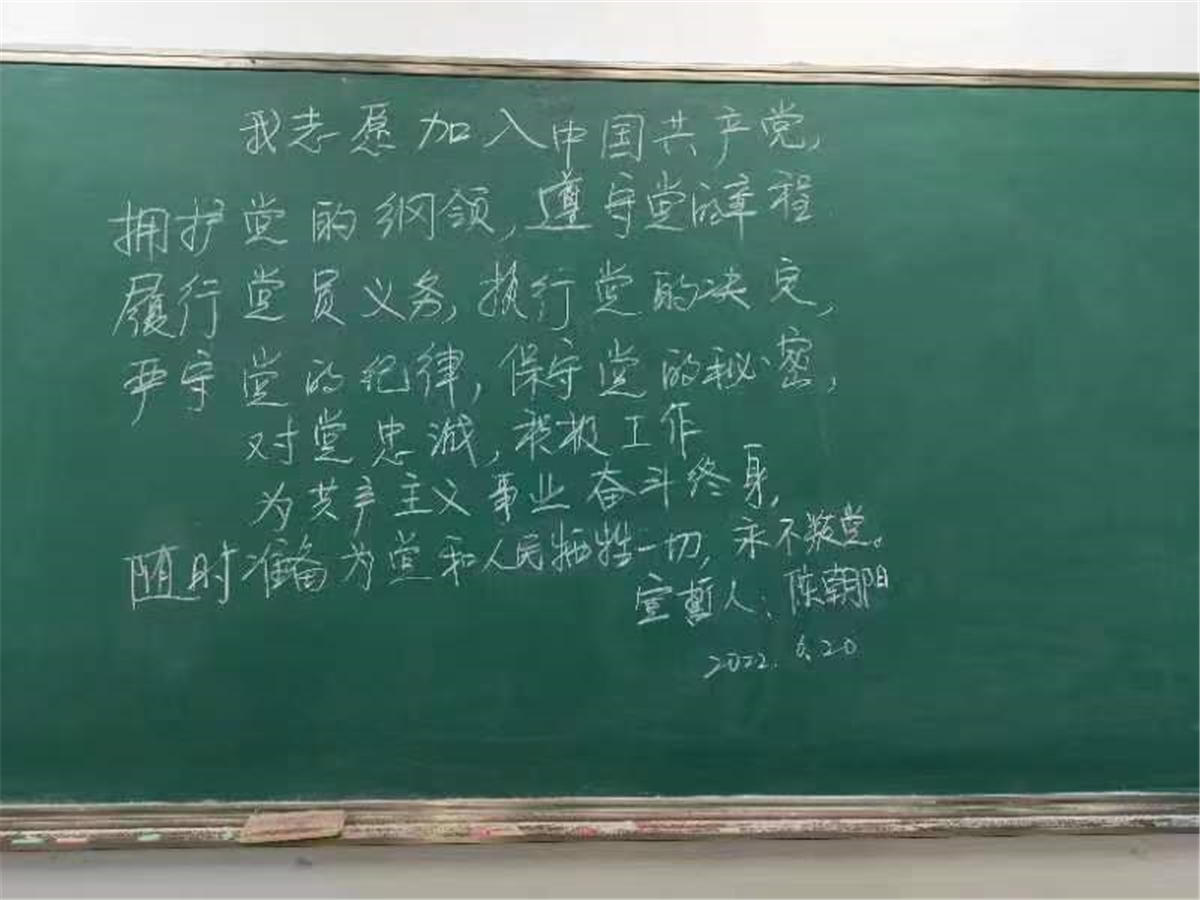 我志愿加入中国共产党,
拥护党的纲领,遵守党的章程
履行党员义务,执行党的决定,
严守党的纪律,保守党的秘密,
对党忠诚,积极工作
为共产主义事业奋斗终身,
随时准备为党和人民牺牲一切,永不叛党。
宣誓人:陈朝阳
2022.6.20